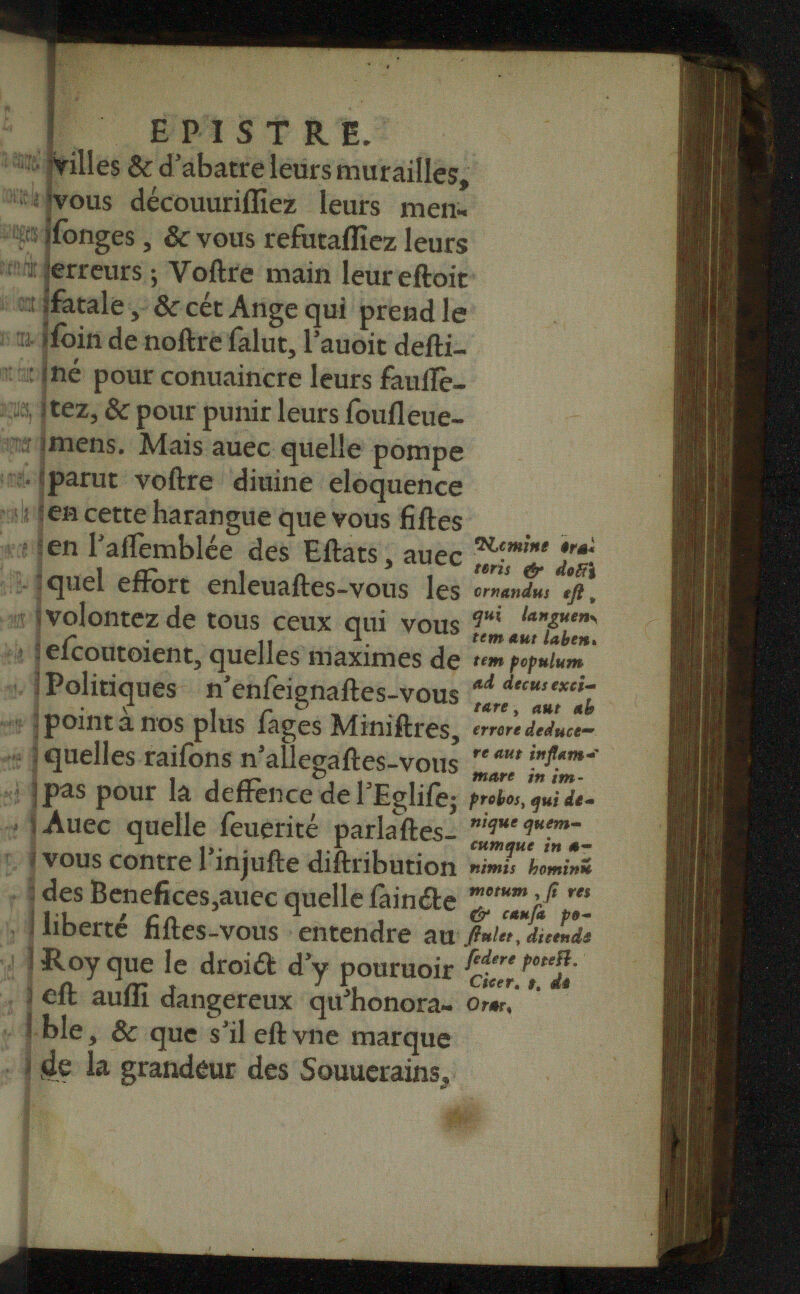 EPISTRE.
villes & d'abatre leurs murailles,
vous découuriſſiez leurs men-
ſonges, & vous refutaſſiez leurs
erreurs; Voſtre main leur eſtoit
fatale, & cét Ange qui prend le
ſoin de noſtre ſalut, l'auoit deſti-
né pour conuaincre leurs fauſſe-
tez, & pour punir leurs ſouſleue-
mens. Mais auec quelle pompe
parut voſtre diuine eloquence
en cette harangue que vous fiſtes
en l'aſſemblée des Eſtats, auec
quel effort enleuaſtes-vous les
volontez de tous ceux qui vous
eſcoutoient, quelles maximes de
Politiques n'enſeignaſtes-vous
point à nos plus ſages Miniſtres,
quelles raiſons n'allegaſtes-vous
pas pour la deffence de l'Egliſe;
Auec quelle ſeuerité parlaſtes-
vous contre l'injuſte diſtribution
des Benefices, auec quelle ſaincte
liberté fiſtes-vous entendre au
Roy que le droict d'y pouruoir
eſt auſſi dangereux qu'honora-
ble, & que s'il eſt vne marque
de la grandeur des Souuerains,
Nemine ora-
toris & docti
ornandus eſt,
qui languen-
tem aut laben-
tem populum
ad decus exci-
tare, aut ab
errore deduce-
re aut inflam-
mare in im-
probos, qui de-
nique quem-
cumque in a-
nimis hominū
motum, ſi res
& cauſa po-
ſtulet, dicendo
ſedere poteſt.
Cicer. de
Orar.